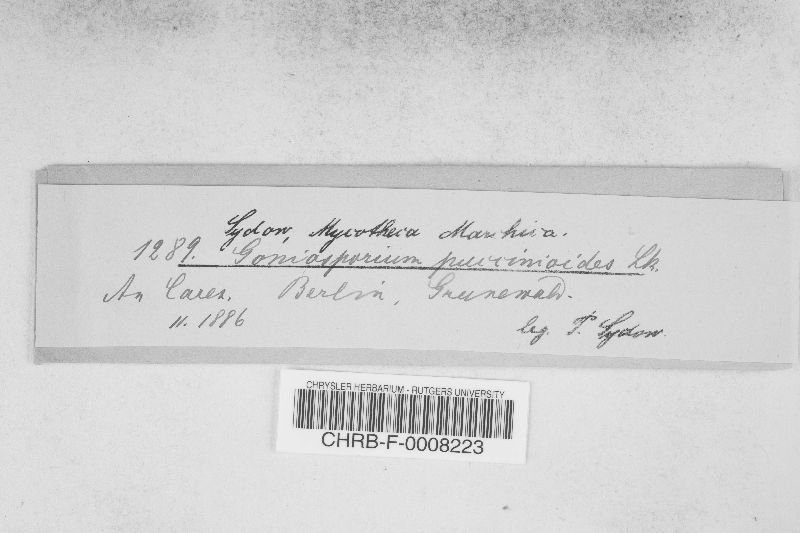 Sydow, Mycotheca Marchica.
1289. Goniosporium puccinioides Lk.
An Carex. Berlin, Grunewald.
11. 1886
leg. P. Sydow.
CHRYSLER HERBARIUM - RUTGERS UNIVERSITY
CHRB-F-0008223